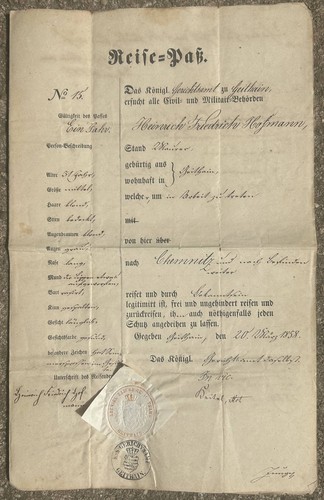 Reise-Paß.
No 15.
Gültigkeit des Passes
Ein Jahr.
Person-Beschreibung
Alter 31 Jahre,
Größe mittel,
Haare blond,
Stirn bedeckt,
Augenbraunen blond,
Augen grau,
Nase lang,
Mund
Bart
Kinn
Gesicht länglich,
Gesichtsfarbe gesund,
besondere Zeichen
Unterschrift des Reisenden
Heinrich Friedrich Hof-
mann
Das Königl. Gerichtsamt zu Geithain
ersucht alle Civil- und Militair-Behörden
Heinrich Friedrich Hofmann,
Stand Maurer
gebürtig aus
wohnhaft in } Geithain,
welcher, um in Arbeit zu treten
mit
von hier über
nach Chemnitz und nach Befinden
weiter
reiset und durch
legitimirt ist, frei und ungehindert reisen und
zurückreisen, ic.. auch nöthigenfalls jeden
Schutz angedeihen zu lassen.
Gegeben Geithain, den 20. März 1858.
Das Königl. Gerichtsamt daselbst.
GEITHAIN